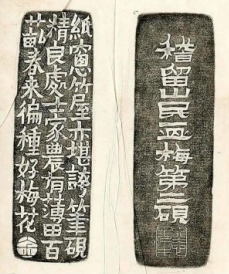 稽留山民画梅第二硯
紙窓竹屋亦堪誇筆硯
精良處士家農有薄田百
畝春来徧種好梅花
金